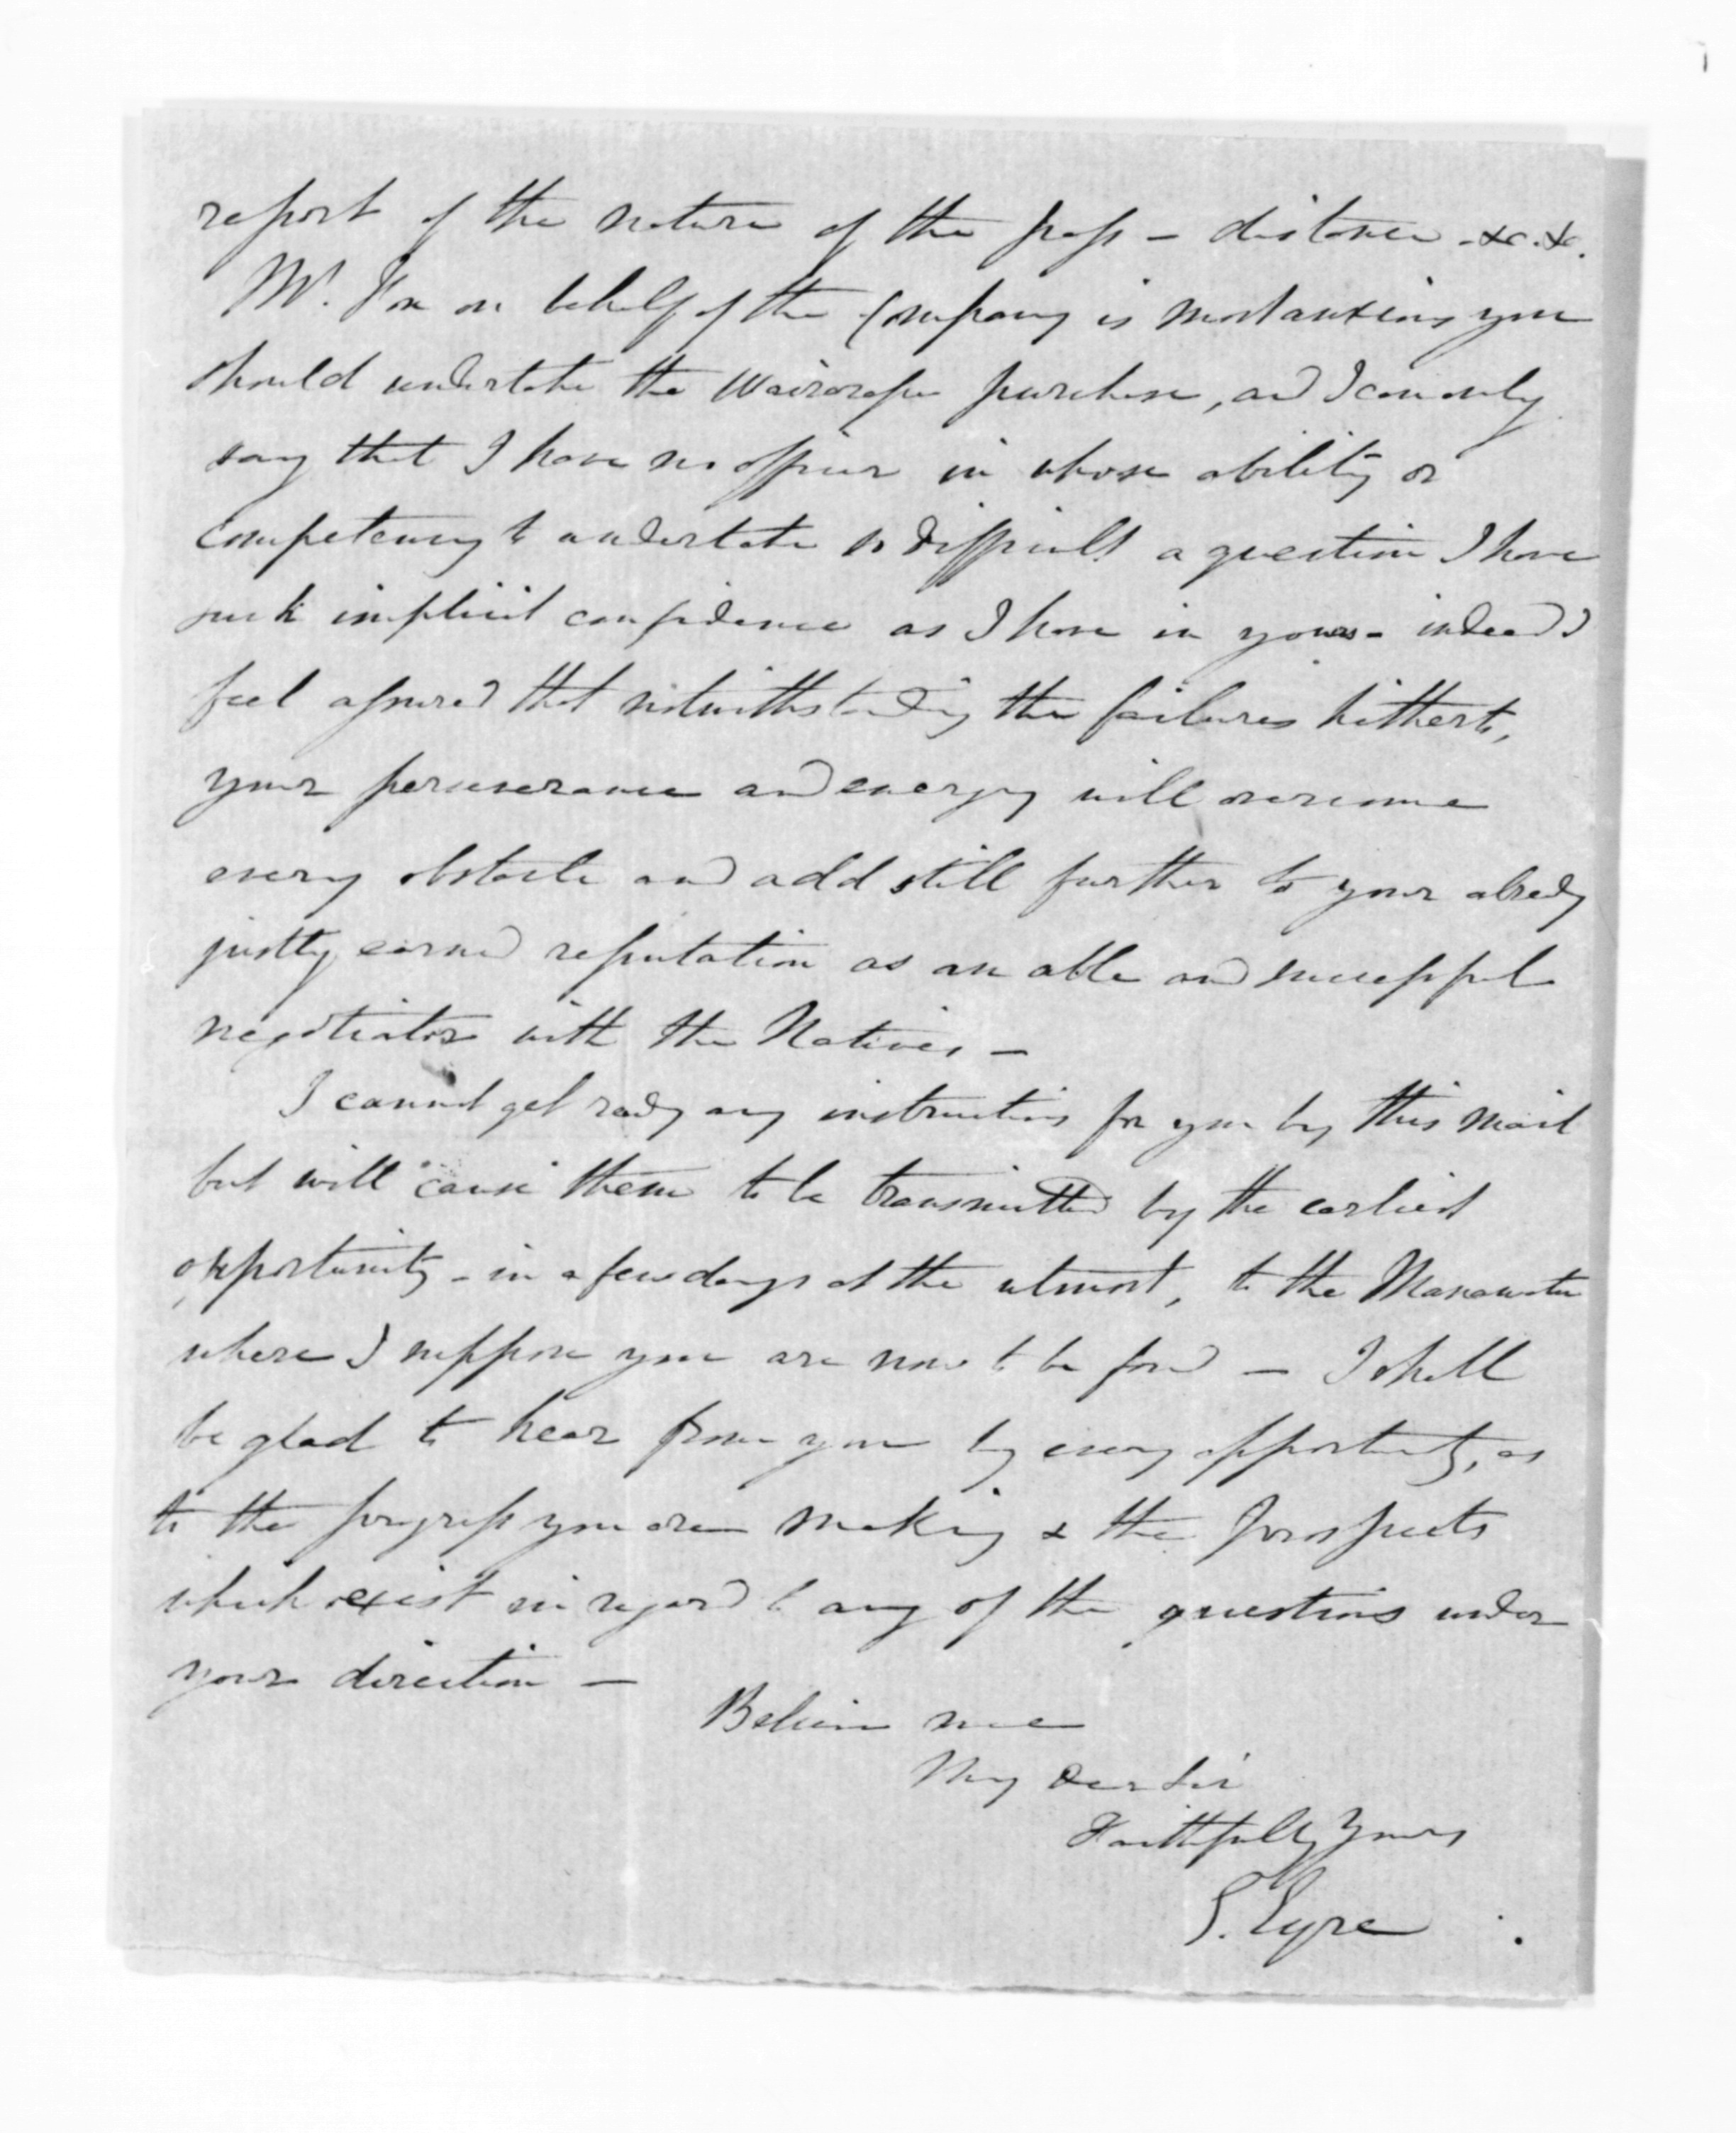 report of the nature of the pass – distance &c. &c.
Mr. Fox on behalf of the Company is most anxious you
should undertake the Wairarapa purchase, and I can only
say that I have no officer in whose ability or
competency to undertake so difficult a question I have
such implicit confidence as I have in yours – indeed I
feel assured that notwithstanding the failures hitherto,
your perseverance and energy will overcome
every obstacle and add still further to your already
justly earned reputation as an able and successful
negotiator with the Natives –
I cannot get ready any instructions for you by this mail
but will cause them to be transmitted by the earliest
opportunity – in a few days at the utmost, to the Manawatu
where I suppose you are now to be found – I shall
be glad to hear from you by every opportunity, as
to the progress you are making & the prospects
which exist in regard to any of the questions under
your direction –
Believe me
My dear Sir
Faithfully Yours
E. Eyre